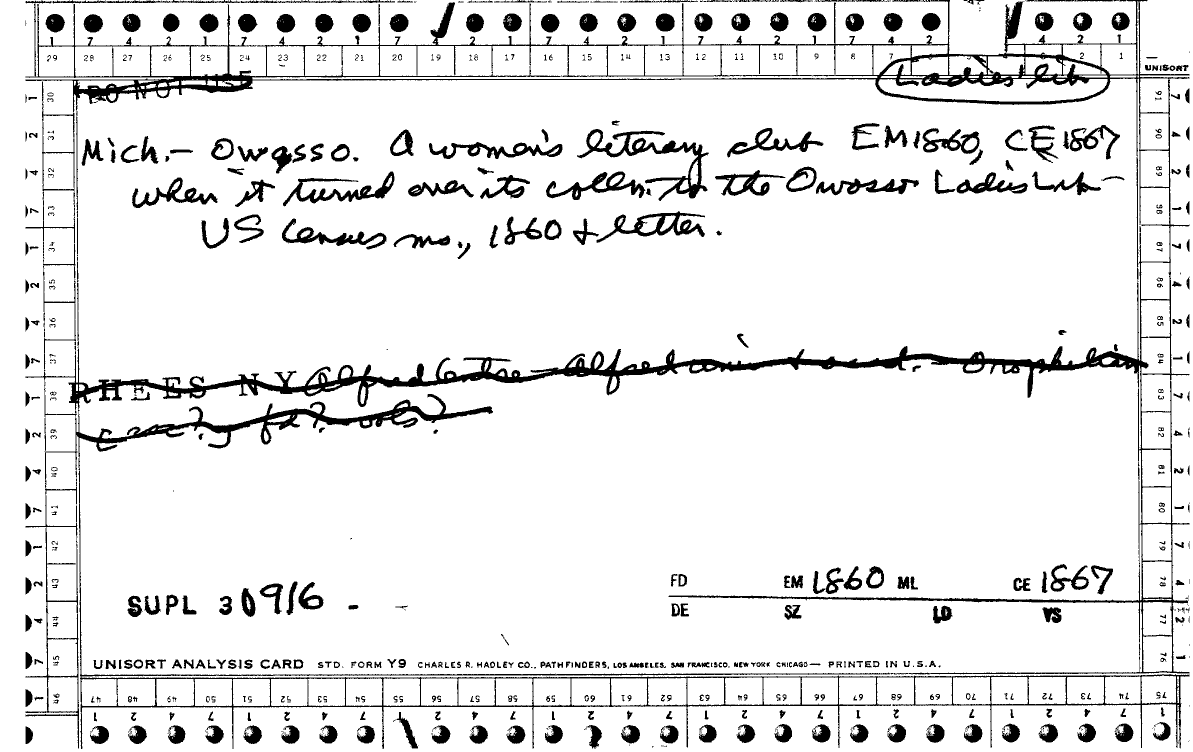 1 7 4 2 1 7 4 2 1 7 4 2 1 7 4 2 1 7 4 2 1 7 4 2 4 2 1
29 28 27 26 25 24 23 22 21 20 19 18 17 16 15 14 13 12 11 10 9 8 7 6 3 2 1
UNISORT
DO NOT USE
Ladies' lib
Mich.- Owosso. A women's literary club EM1860, CE 1867
when it turned over its colln. to the Owosso Ladies Lib-
US Census ms., 1860 & letter.
RHEES NY Alfred Centre - Alfred univ & acad. - Orophilian
fd? vols?
SUPL 30916 -
FD EM 1860 ML CE 1867
DE SZ LD VS
UNISORT ANALYSIS CARD STD. FORM Y9 CHARLES R. HADLEY CO., PATHFINDERS, LOS ANGELES, SAN FRANCISCO, NEW YORK CHICAGO— PRINTED IN U.S.A.
47 48 49 50 51 52 53 54 55 56 57 58 59 60 61 62 63 64 65 66 67 68 69 70 71 72 73 74 75